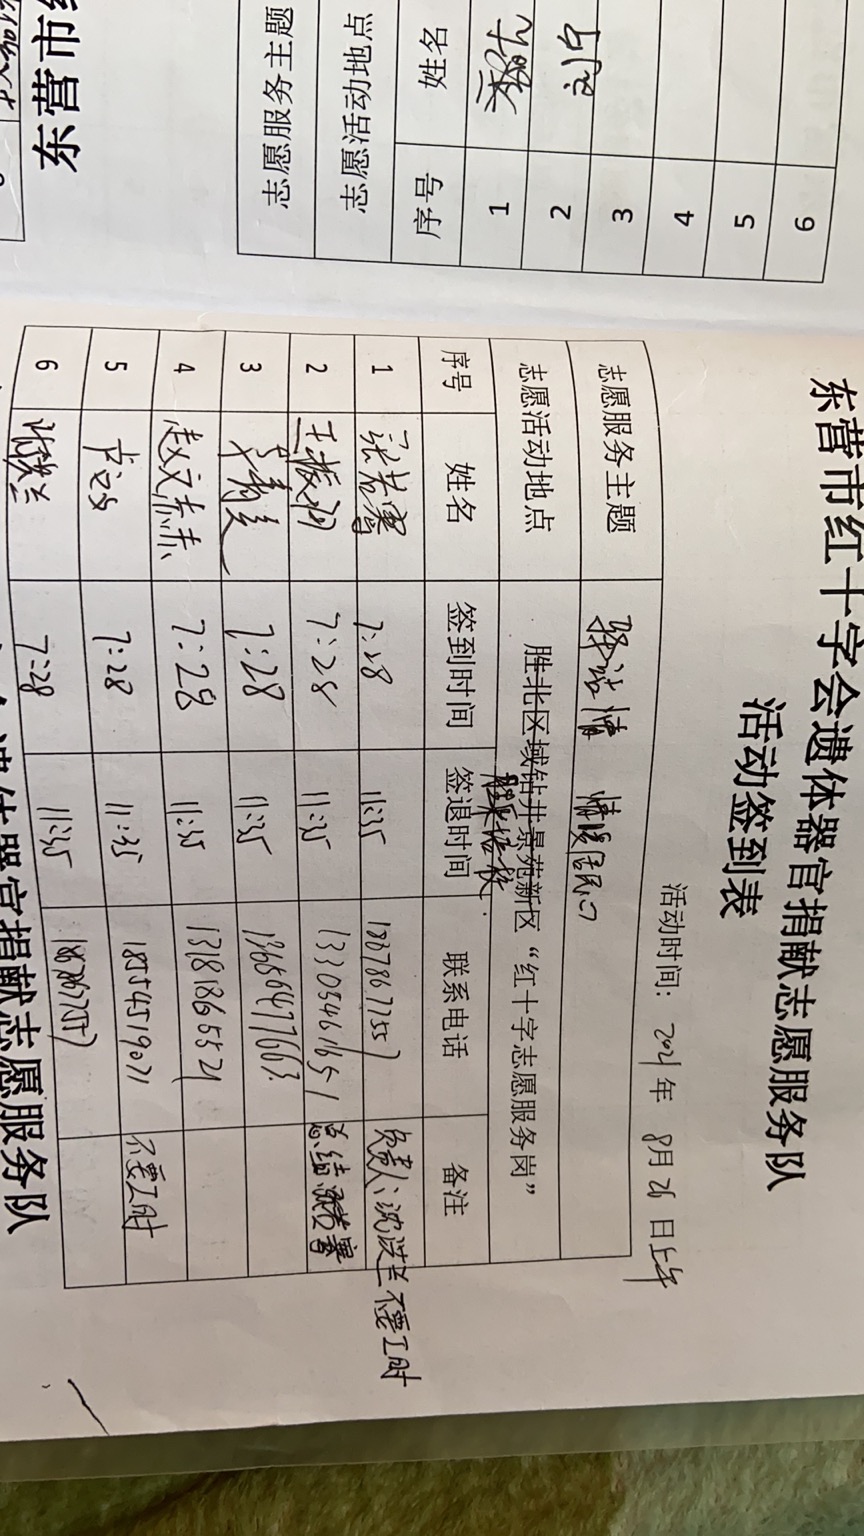 东营市红十字会遗体器官捐献志愿服务队
活动签到表
活动时间： 2021年 8月26日上午
志愿服务主题 驿站情 情暖居民心
志愿活动地点 胜北区域钻井景苑新区“红十字志愿服务岗”
序号 姓名 签到时间 签退时间 联系电话 备注
1 张若骞 7:28 11:35 18678677557 负责人:沈洪兰 不要工时
2 王振 7:28 11:35 13305461651 总结
3 7:28 11:35 13656477663
4 赵文 7:28 11:35 13181865521
5 7:28 11:35 18554519071 不要工时
6 兰 7:28 11:35
遗体器官捐献志愿服务队
东营市红
志愿服务主题
志愿活动地点
序号 姓名
1
2 刘宁
3
4
5
6